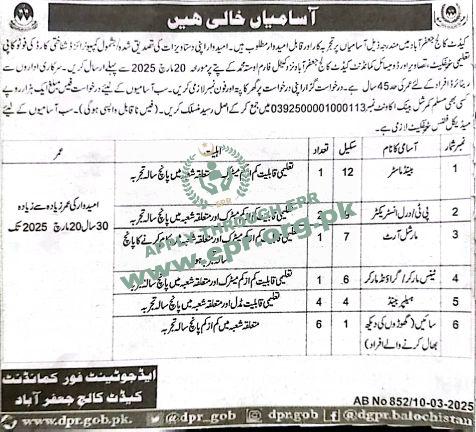 آسامیاں خالی ہیں
کیڈٹ کالج جعفر آباد میں مندرجہ ذیل آسامیوں پر تجربہ کار اور قابل امیدوار مطلوب ہیں۔ امیدوار اپنی دستاویزات کی تصدیق شدہ بشمول کمپیوٹرائزڈ شناختی کارڈ کی فوٹو کاپی
تعلیمی سرٹیفکیٹ، تصاویر اور ڈومیسائل کمانڈنٹ کیڈٹ کالج جعفر آباد نزد کیٹل فارم اوستہ محمد کے پتے پر مورخہ 20 مارچ 2025 سے پہلے ارسال کریں۔ سرکاری اداروں سے
ریٹائرڈ افراد کی حد 45 سال ہے۔ درخواست گزار اپنی درخواست پر گھر کا پتہ اور فون نمبر لازمی لکھیں۔ سب آسامیوں کے لیئے فیس مبلغ ایک ہزار روپے
کسی بھی مسلم کمرشل بینک اکاؤنٹ نمبر 0392500001000113 میں جمع کر کے اصل رسید منسلک کریں۔ (فیس نا قابل واپسی ہوگی)۔ سب آسامیوں کے لیئے
میڈیکل فٹنس سرٹیفکیٹ لازمی ہے۔
نمبر شمار آسامی کا نام سکیل تعداد اہلیت عمر
1 بینڈ ماسٹر 12 1 تعلیمی قابلیت کم از کم میٹرک اور متعلقہ شعبہ میں پانچ سالہ تجربہ
امیدوار کی عمر زیادہ سے زیادہ
30 سال 20 مارچ 2025 تک
2 پی ٹی اور ڈرل انسٹریکٹر تعلیمی قابلیت کم از کم میٹرک اور متعلقہ شعبہ میں پانچ سالہ تجربہ
3 مارشل آرٹ 7 1 تعلیمی قابلیت کم از کم میٹرک اور متعلقہ شعبہ میں کام کرنے کا پانچ
4 ٹینس مارکر / گراؤنڈ مارکر 6 1 تعلیمی قابلیت کم از کم میٹرک اور متعلقہ شعبہ میں پانچ سالہ تجربہ
5 ہیلپر بینڈ 4 4 تعلیمی قابلیت مڈل اور متعلقہ شعبہ میں پانچ سالہ تجربہ
6 سائیں (گھوڑوں کی دیکھ بھال کرنے والے افراد) 1 6 متعلقہ شعبہ میں کم از کم پانچ سالہ تجربہ
APPLY THROUGH EPR
www.epr.org.pk
ایڈجوٹینٹ فور کمانڈنٹ
کیڈٹ کالج جعفر آباد
AB No 852/10-03-2025
www.dpr.gob.pk @dpr_gob dpr.gob @dgpr.balochistan